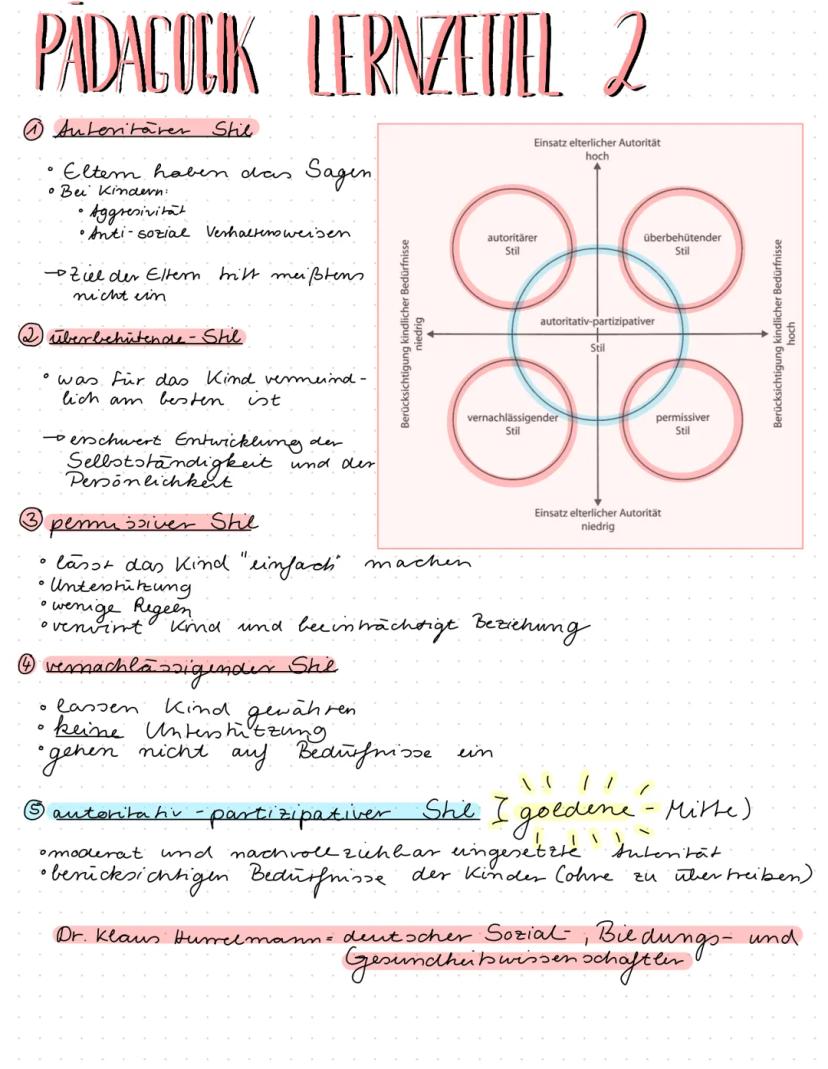 PÄDAGOGIK LERNZETTEL 2
① Autoritärer Stil
• Eltern haben das Sagen
• Bei Kindern:
• Aggresivität
• Anti-sozial Verhaltensweisen
→ Ziel der Eltern tritt meißtens
nicht ein
② überbehütende-Stil
• was für das Kind vermeind-
lich am besten ist
→ erschwert Entwicklung der
Selbstständigkeit und der
Persönlichkeit
Einsatz elterlicher Autorität
hoch
autoritärer
Stil
überbehütender
Stil
Berücksichtigung kindlicher Bedürfnisse
niedrig
autoritativ-partizipativer
Stil
Berücksichtigung kindlicher Bedürfnisse
hoch
vernachlässigender
Stil
permissiver
Stil
Einsatz elterlicher Autorität
niedrig
③ permissiver Stil
• lässt das Kind "einfach" machen
• Unterstützung
• wenige Regeln
• verwirrt Kind und beeinträchtigt Beziehung
④ vernachlässigender Stil
• lassen Kind gewähren
• keine Unterstützung
• gehen nicht auf Bedürfnisse ein
⑤ autoritativ-partizipativer Stil (goldene-Mitte)
• moderat und nachvollziehbar eingesetzte Autorität
• berücksichtigen Bedürfnisse der Kinder (ohne zu übertreiben)
Dr. Klaus Hurrelmann = deutscher Sozial-, Bildungs- und
Gesundheitswissenschaftler